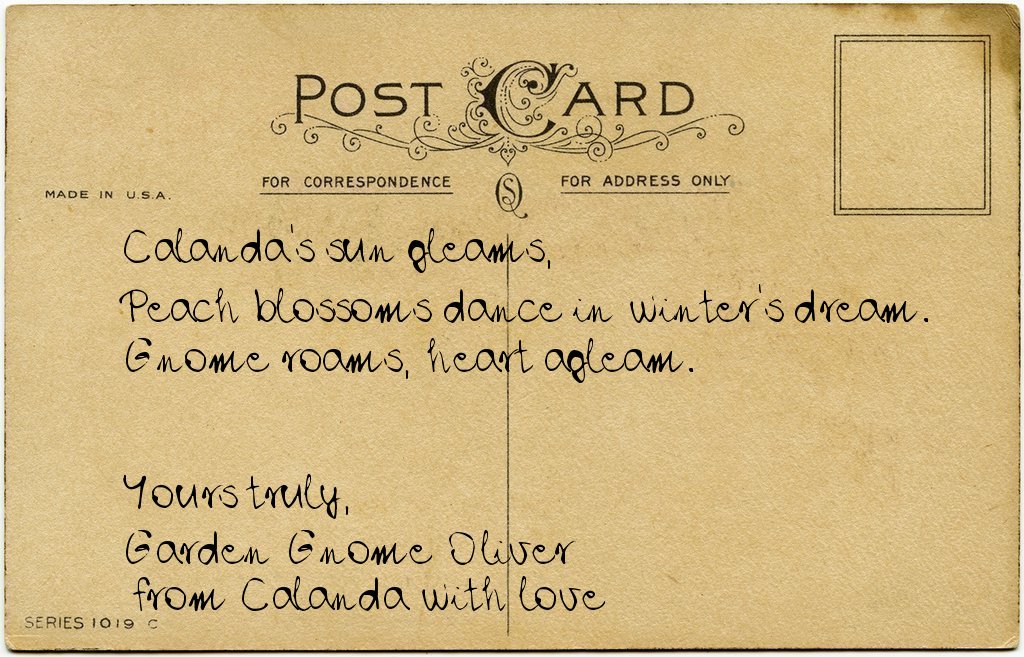 POST CARD
FOR CORRESPONDENCE
FOR ADDRESS ONLY
MADE IN U.S.A.
Calanda's sun gleams,
Peach blossoms dance in winter's dream.
Gnome roams, heart agleam.
Yours truly,
Garden Gnome Oliver
from Calanda with love
SERIES 1019 C